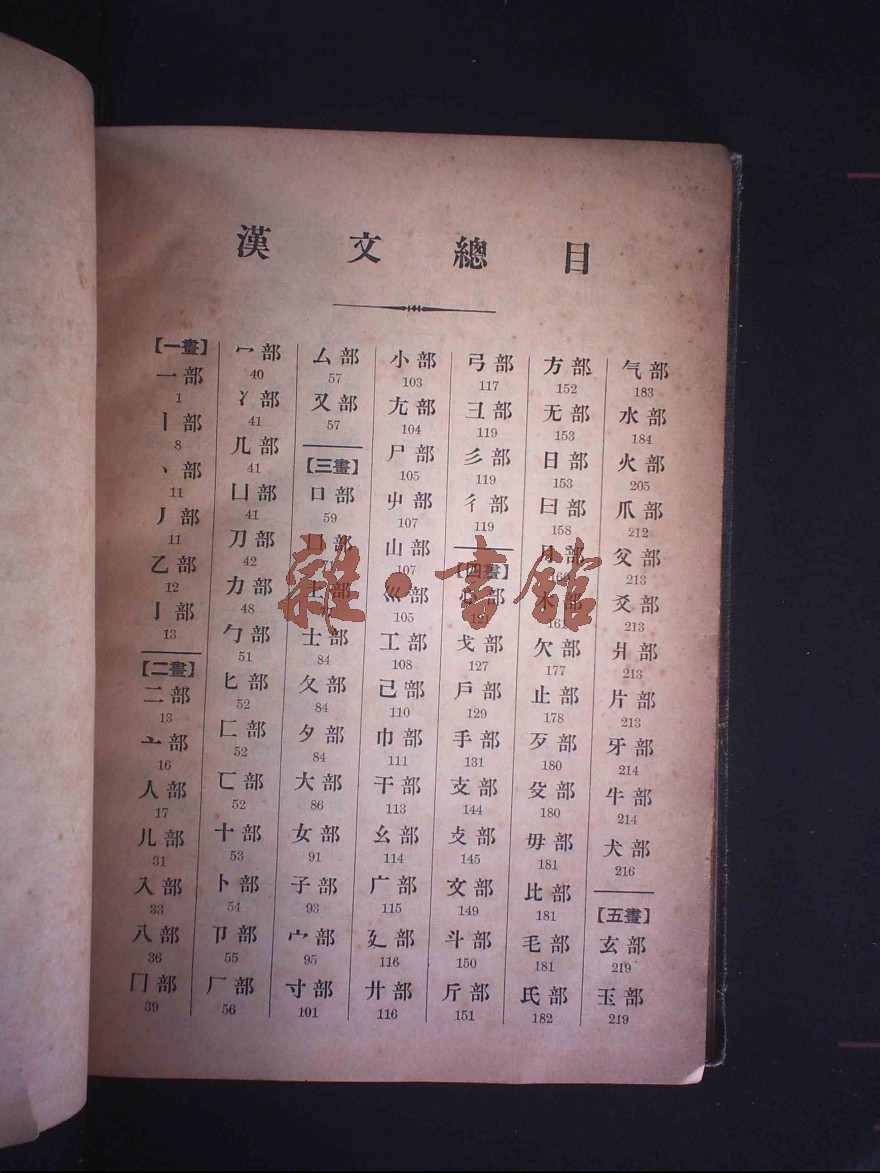 漢文總目
【一畫】
一部
1
丨部
8
丶部
11
丿部
11
乙部
12
亅部
13
【二畫】
二部
13
亠部
16
人部
17
儿部
31
入部
33
八部
36
冂部
39
冖部
40
冫部
41
几部
41
凵部
41
刀部
42
力部
48
勹部
51
匕部
52
匚部
52
匸部
52
十部
53
卜部
54
卩部
55
厂部
56
厶部
57
又部
57
【三畫】
口部
59
囗部
土部
士部
84
夂部
84
夕部
84
大部
86
女部
91
子部
93
宀部
95
寸部
101
小部
103
尢部
104
尸部
105
屮部
107
山部
107
巛部
105
工部
108
己部
110
巾部
111
干部
113
幺部
114
广部
115
廴部
116
廾部
116
弓部
117
彐部
119
彡部
119
彳部
119
【四畫】
心部
121
戈部
127
戶部
129
手部
131
支部
144
攴部
145
文部
149
斗部
150
斤部
151
方部
152
无部
153
日部
153
曰部
158
月部
160
木部
161
欠部
177
止部
178
歹部
180
殳部
180
毋部
181
比部
181
毛部
181
氏部
182
气部
183
水部
184
火部
205
爪部
212
父部
213
爻部
213
爿部
213
片部
213
牙部
214
牛部
214
犬部
216
【五畫】
玄部
219
玉部
219
雜·書館